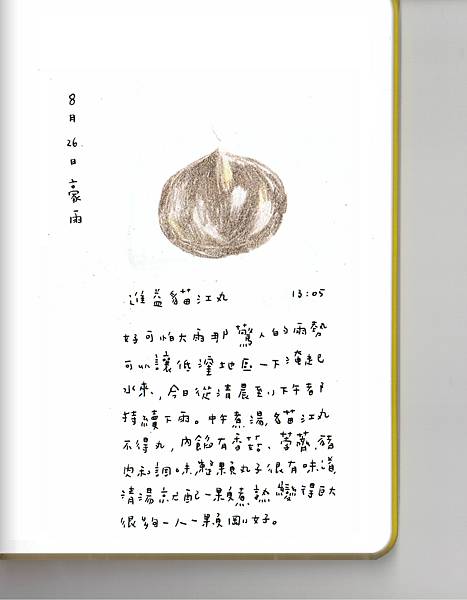 8月26日豪雨
進益貓江丸 13:05
好可怕大雨那驚人的雨勢
可以讓低窪地區一下淹起
水來,今日從清晨到下午都
持續下雨。中午煮湯,貓江丸
不得丸,內餡有香菇、荸薺、豬
肉和調味整顆丸子很有味道
清湯就配一顆煮熟變得巨大
很夠一人一顆剛好。